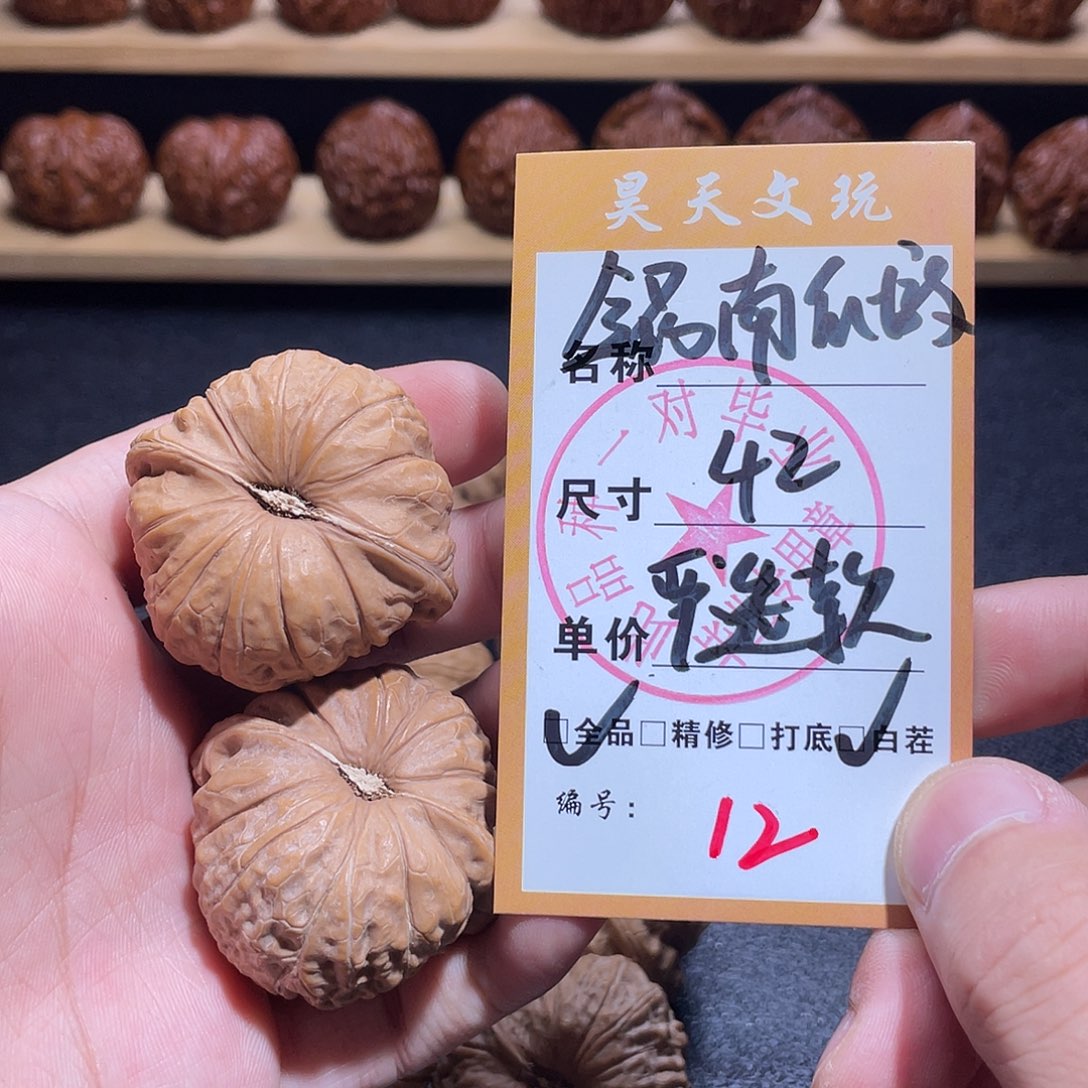 昊天文玩
名称 南瓜
尺寸 42
单价 严选款
□全品□精修□打底□白茬
编号：12
一对毕业